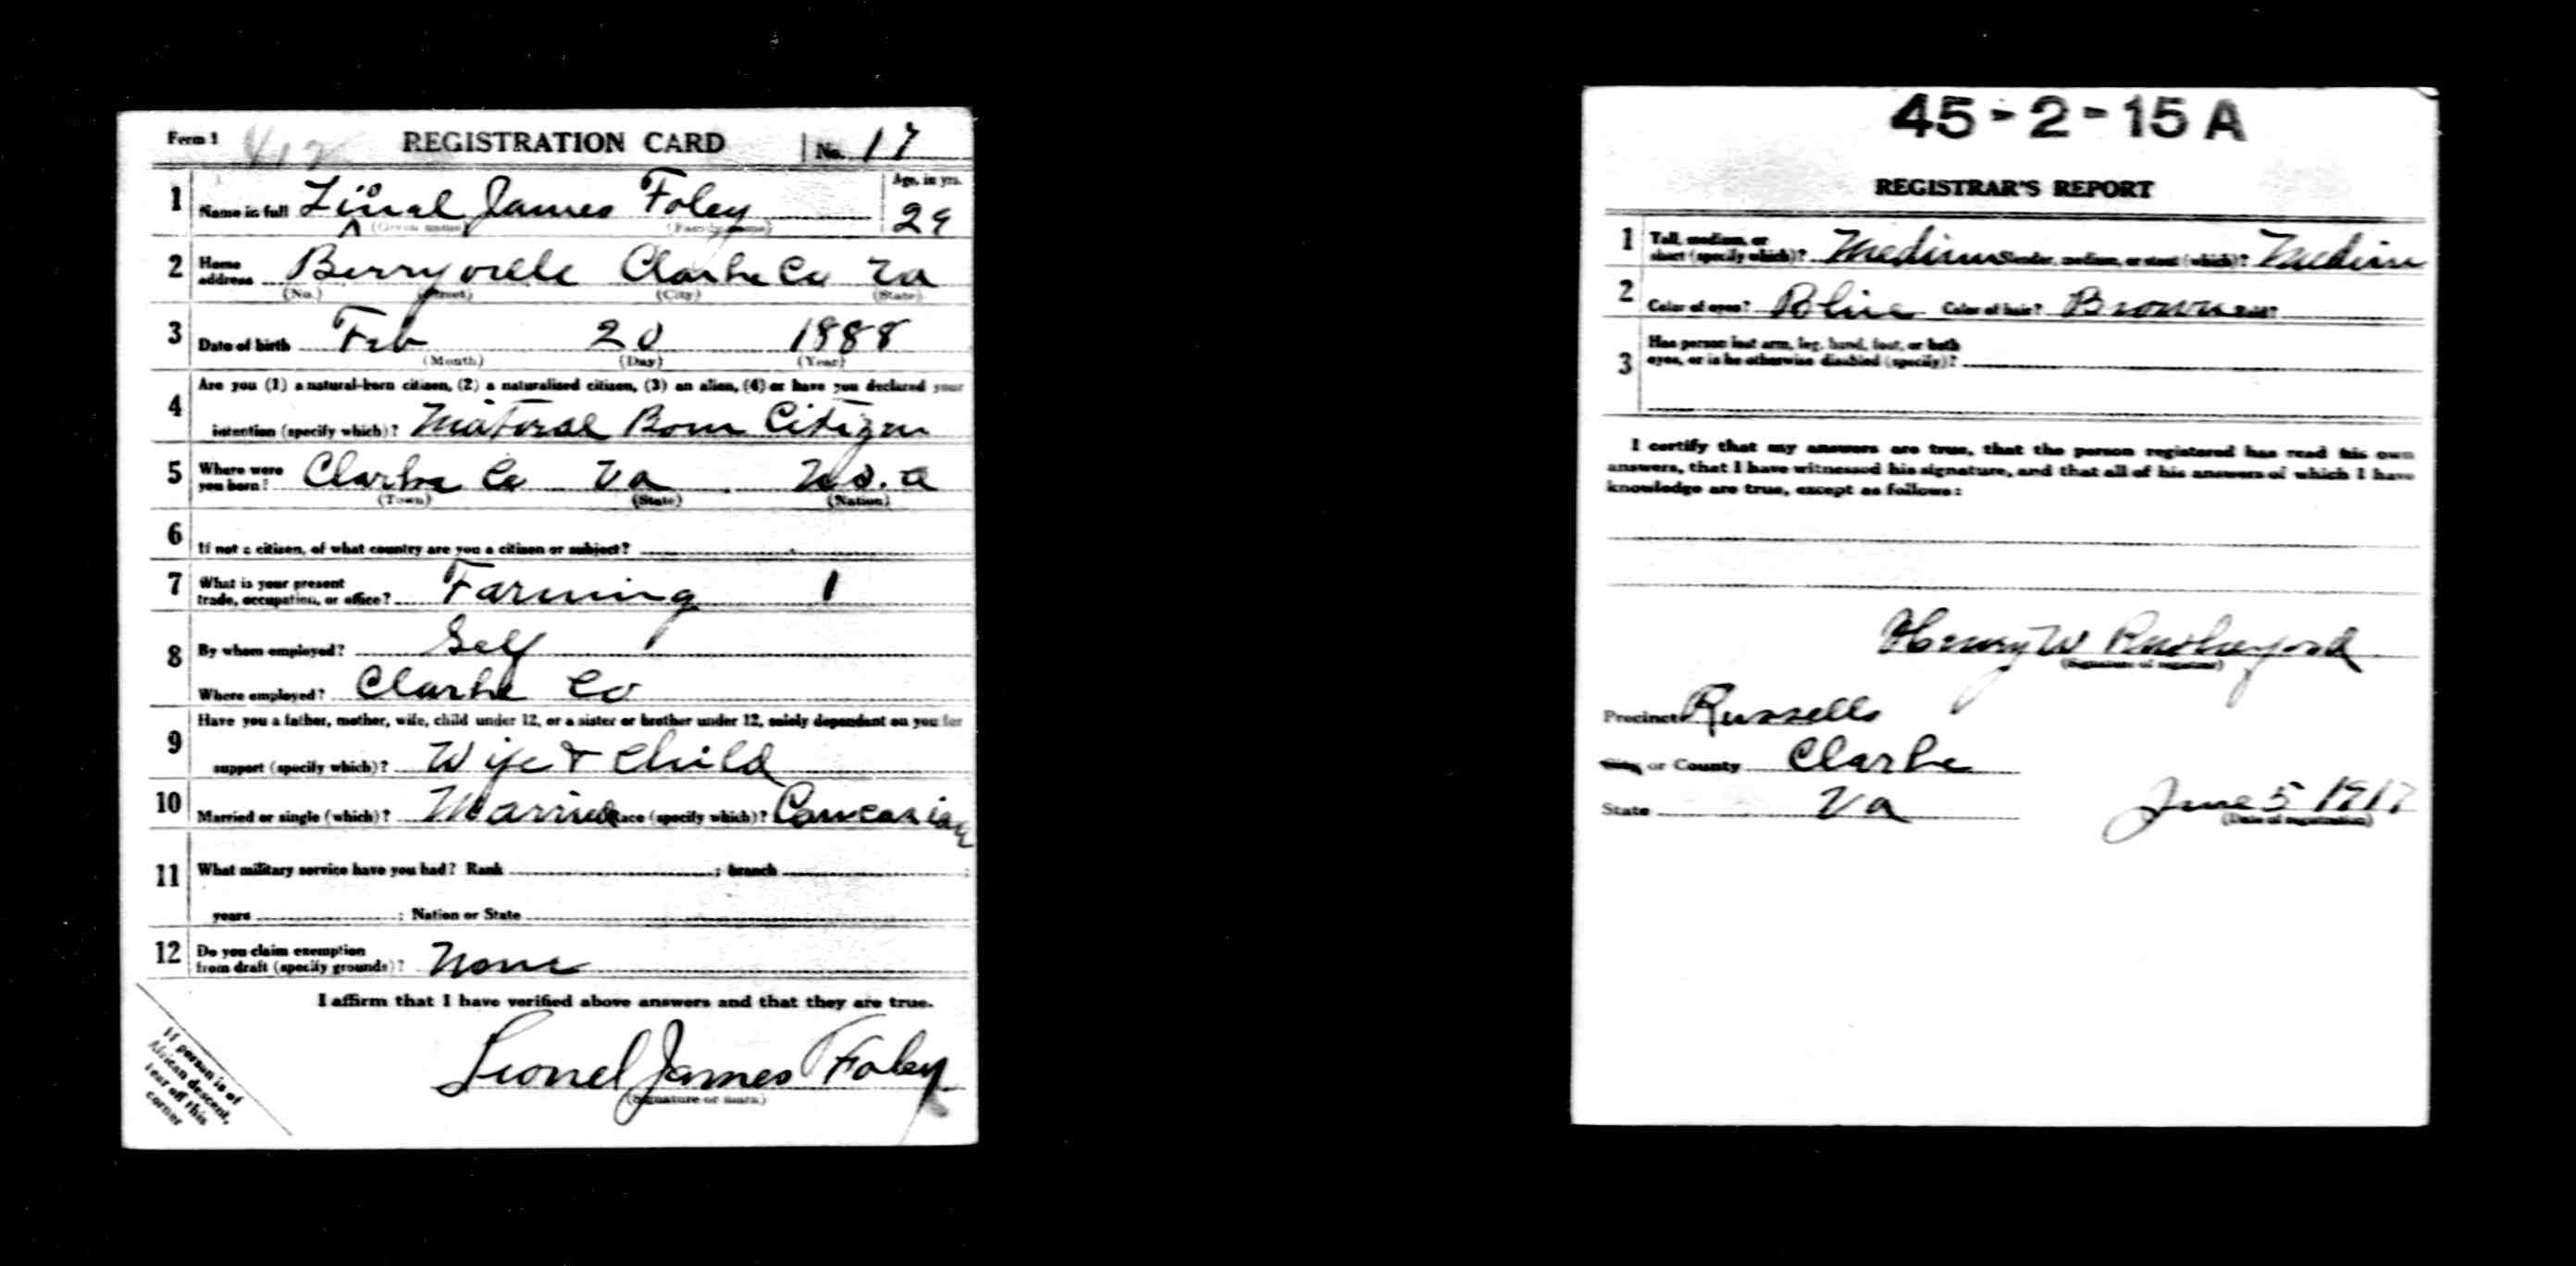 Form 1 412 REGISTRATION CARD No. 17
1 Name in full Linal o James Foley Age, in yrs.
^ (Given name) (Family name) 29
2 Home address Berryville Clarke Co Va
(No.) (Street) (City) (State)
3 Date of birth Feb 20 1888
(Month) (Day) (Year)
4 Are you (1) a natural-born citizen, (2) a naturalized citizen, (3) an alien, (4) or have you declared your
intention (specify which)? Natural Born Citizen
5 Where were you born? Clarke Co Va U.S.a
(Town) (State) (Nation)
6 If not a citizen, of what country are you a citizen or subject?
7 What is your present trade, occupation, or office? Farming 1
8 By whom employed? Self
Where employed? Clarke Co
9 Have you a father, mother, wife, child under 12, or a sister or brother under 12, solely dependent on you for
support (specify which)? Wife & Child
10 Married or single (which)? Married Race (specify which)? Caucasian
11 What military service have you had? Rank ; branch
years ; Nation or State
12 Do you claim exemption from draft (specify grounds)? None
I affirm that I have verified above answers and that they are true.
Lionel James Foley
(Signature or mark)
If person is of
African descent,
tear off this
corner
45-2-15 A
REGISTRAR'S REPORT
1 Tall, medium, or short (specify which)? Medium Slender, medium, or stout (which)? Medium
2 Color of eyes? Blue Color of hair? Brown Bald?
3 Has person lost arm, leg, hand, foot, or both
eyes, or is he otherwise disabled (specify)?
I certify that my answers are true, that the person registered has read his own
answers, that I have witnessed his signature, and that all of his answers of which I have
knowledge are true, except as follows:
Henry W Rutherford
(Signature of registrar)
Precinct Russells
City or County Clarke
State Va June 5 1917
(Date of registration)